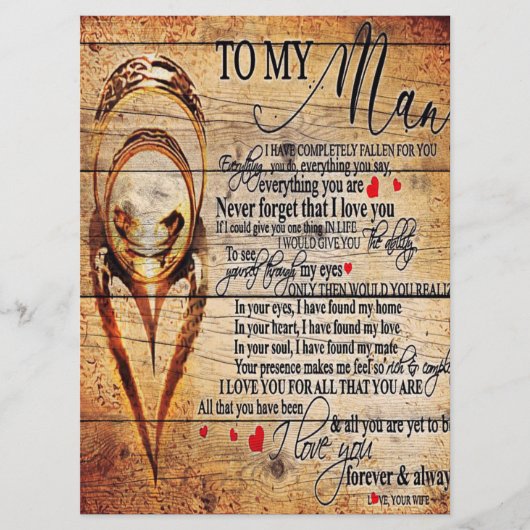 TO MY Man
I HAVE COMPLETELY FALLEN FOR YOU
Everything you do, everything you say,
everything you are
Never forget that I love you
If I could give you one thing IN LIFE
I WOULD GIVE YOU The ability
To see
yourself through my eyes
ONLY THEN WOULD YOU REALIZ
In your eyes, I have found my home
In your heart, I have found my love
In your soul, I have found my mate
Your presence makes me feel so rich & comple
I LOVE YOU FOR ALL THAT YOU ARE
All that you have been
& all you are yet to be
I love you
forever & alway
LOVE, YOUR WIFE